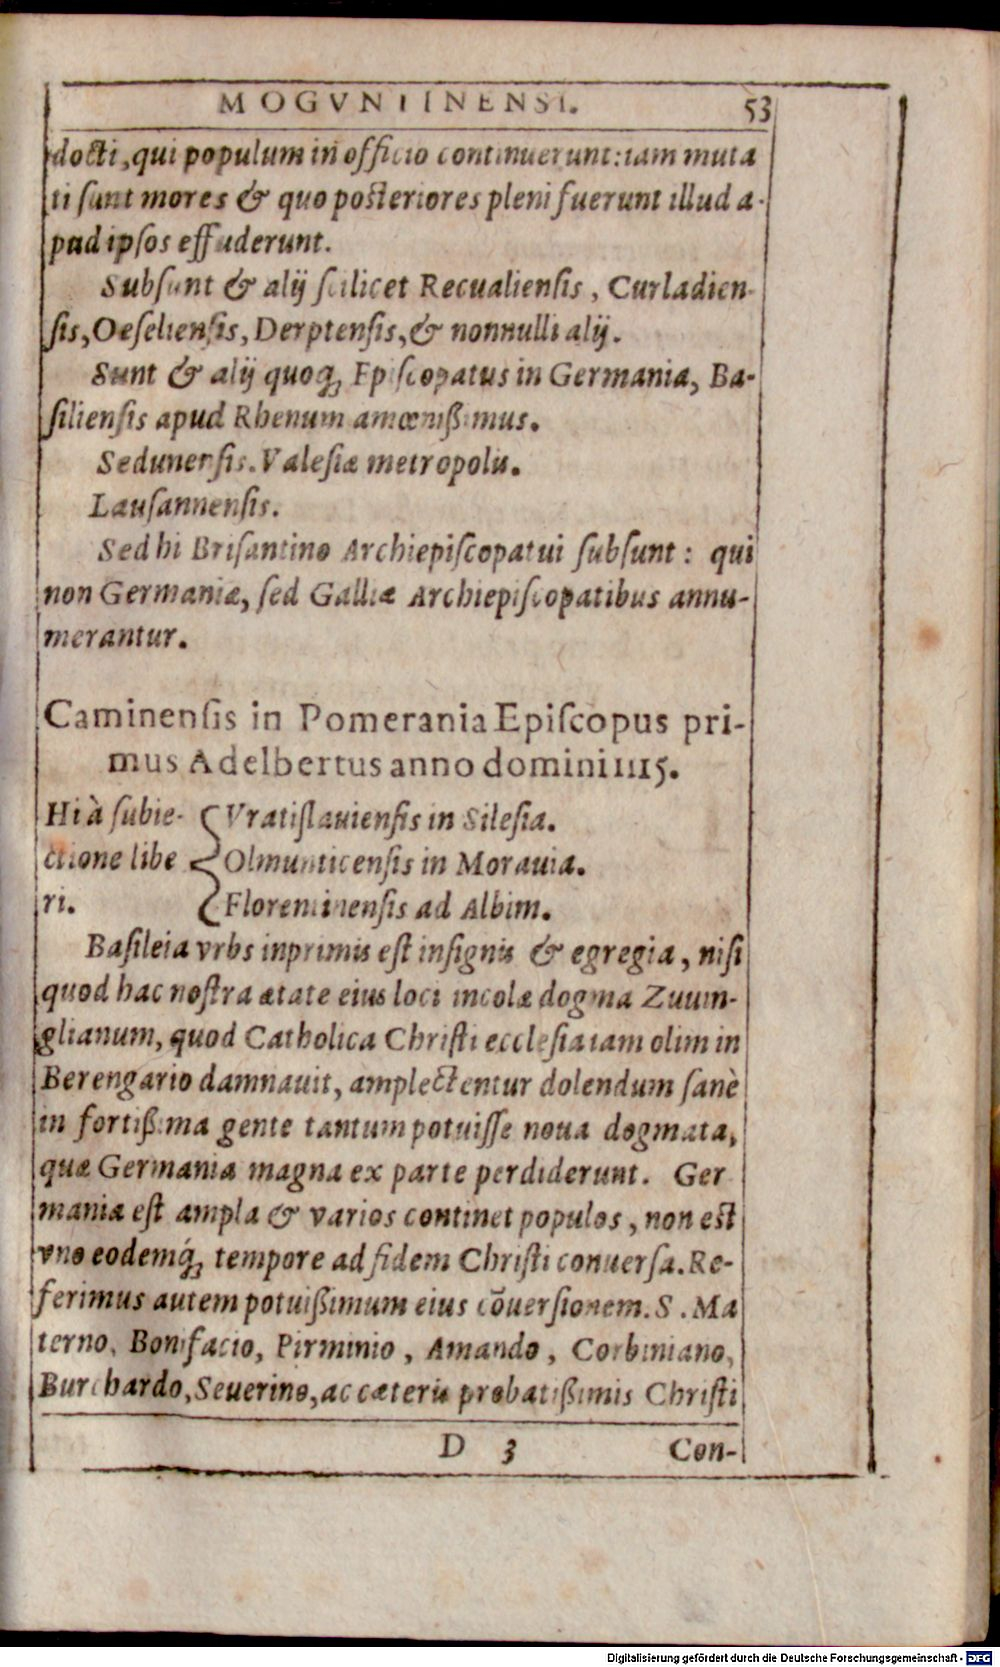 MOGVNTINENSI. 53
docti, qui populum in officio continuerunt: iam muta
ti sunt mores & quo posteriores pleni fuerunt illud a-
pud ipsos effuderunt.
Subsunt & alij scilicet Recualiensis, Curladien-
sis, Oeseliensis, Derptensis, & nonnulli alij.
Sunt & alij quoq; Episcopatus in Germania, Ba-
siliensis apud Rhenum amœnißimus.
Sedunensis. Valesiæ metropolis.
Lausannensis.
Sed hi Brisantino Archiepiscopatui subsunt: qui
non Germaniæ, sed Galliæ Archiepiscopatibus annu-
merantur.
Caminensis in Pomerania Episcopus pri-
mus Adelbertus anno domini 1115.
Hi à subie- Vratislauiensis in Silesia.
ctione libe Olmunticensis in Morauia.
ri. Floreminensis ad Albim.
Basileia vrbs inprimis est insignis & egregia, nisi
quod hac nostra ætate eius loci incolæ dogma Zuuin-
glianum, quod Catholica Christi ecclesia iam olim in
Berengario damnauit, amplectentur dolendum sanè
in fortißima gente tantum potuisse noua dogmata,
quæ Germania magna ex parte perdiderunt. Ger
mania est ampla & varios continet populos, non est
vno eodemq́; tempore ad fidem Christi conuersa. Re-
ferimus autem potuißimum eius cõuersionem. S. Ma
terno, Bonifacio, Pirminio, Amando, Corbiniano,
Burchardo, Seuerino, ac cæteris probatißimis Christi
D 3 Con-
Digitalisierung gefördert durch die Deutsche Forschungsgemeinschaft - DFG